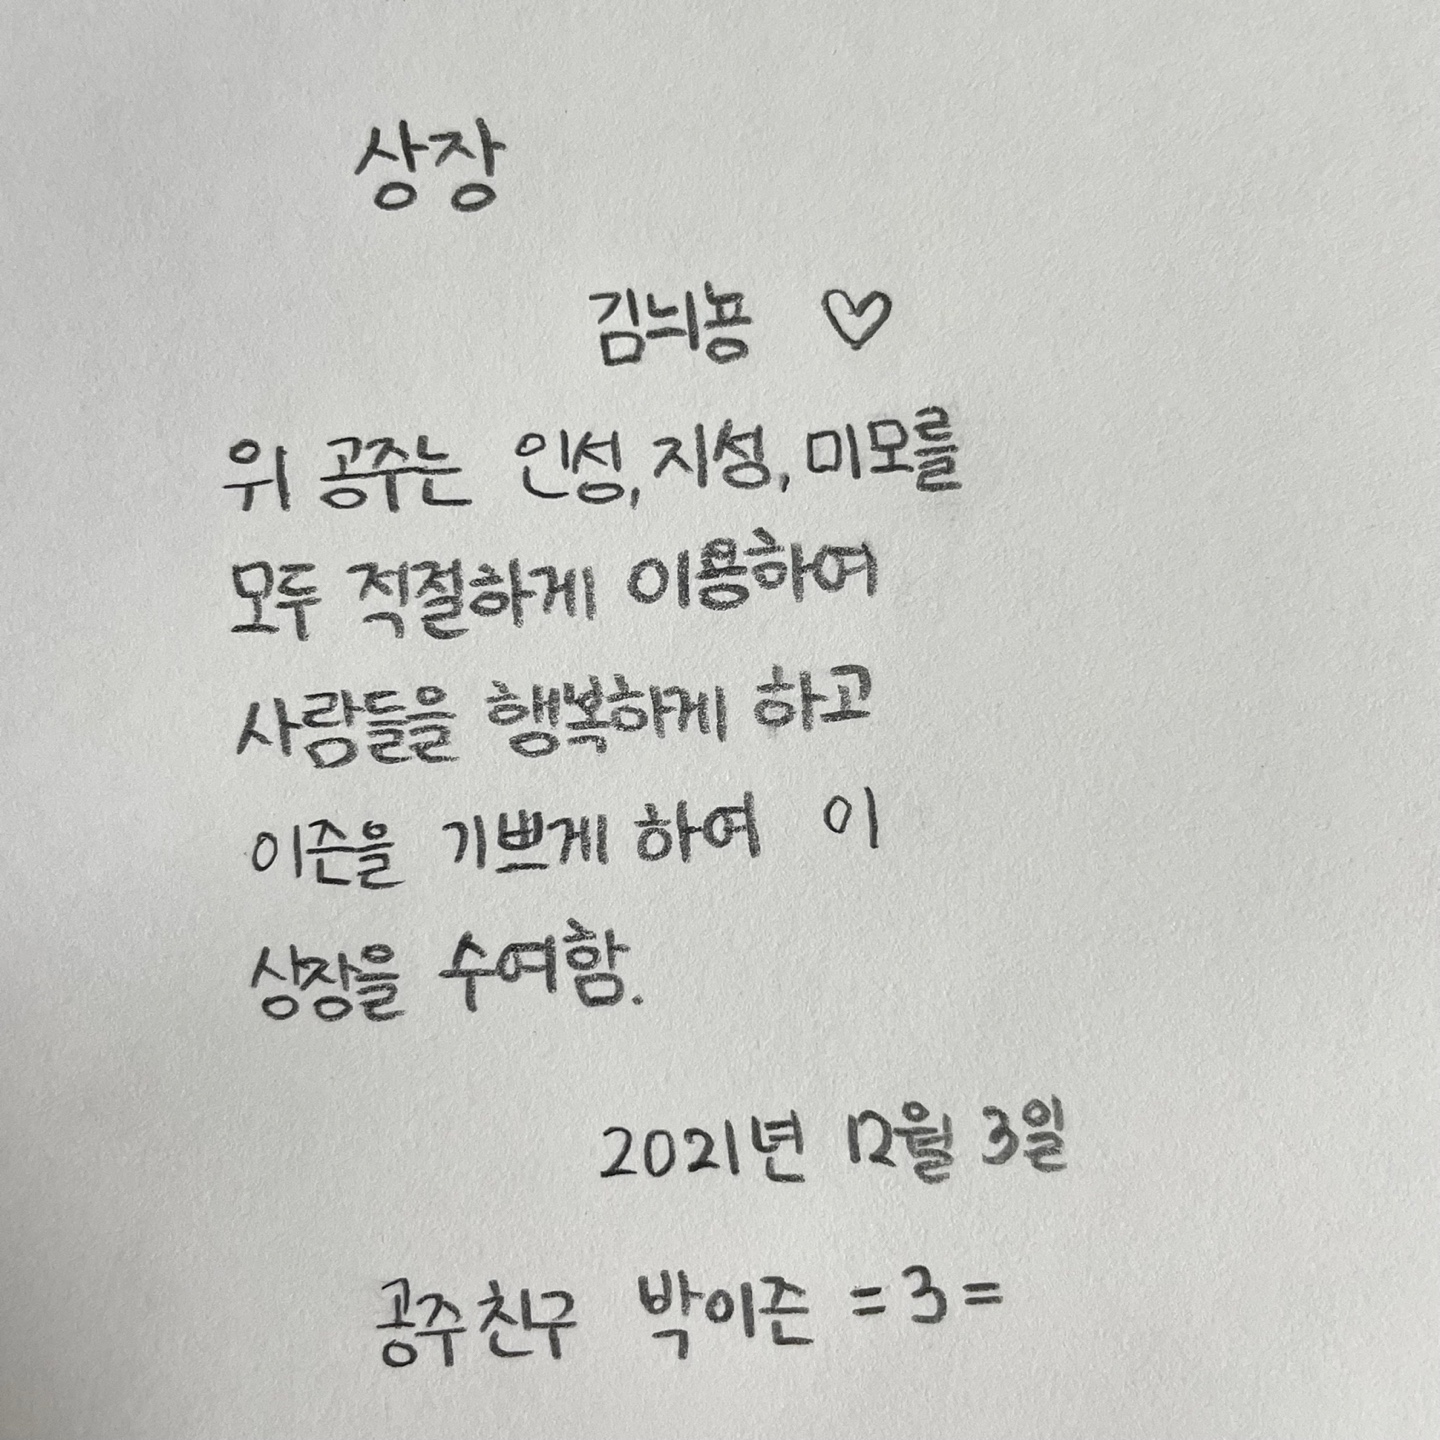 상장
김늬뇽 ♡
위 공주는 인성, 지성, 미모를
모두 적절하게 이용하여
사람들을 행복하게 하고
이즌을 기쁘게 하여 이
상장을 수여함.
2021년 12월 3일
공주친구 박이즌 =3=